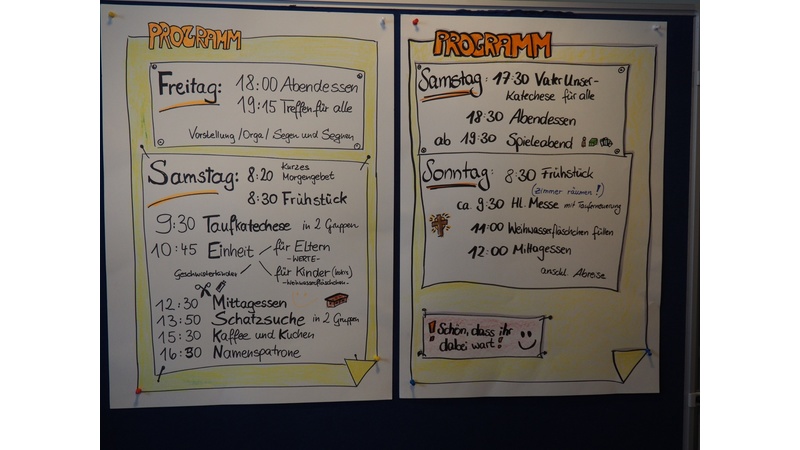 PROGRAMM
Freitag: 18:00 Abendessen
19:15 Treffen für alle
Vorstellung / Orga / Segen und Segnen
Samstag: 8:20 Kurzes
Morgengebet
8:30 Frühstück
9:30 Taufkatechese in 2 Gruppen
10:45 Einheit für Eltern
-WERTE-
Geschwisterkinder für Kinder (extra)
-Weihwasserfläschchen-
12:30 Mittagessen
13:50 Schatzsuche in 2 Gruppen
15:30 Kaffee und Kuchen
16:30 Namenspatrone
PROGRAMM
Samstag: 17:30 Vater Unser-
Katechese für alle
18:30 Abendessen
ab 19:30 Spieleabend
Sonntag: 8:30 Frühstück
(Zimmer räumen!)
ca. 9:30 Hl. Messe mit Tauferneuerung
11:00 Weihwasserfläschchen füllen
12:00 Mittagessen
anschl. Abreise
! Schön, dass ihr
dabei wart!